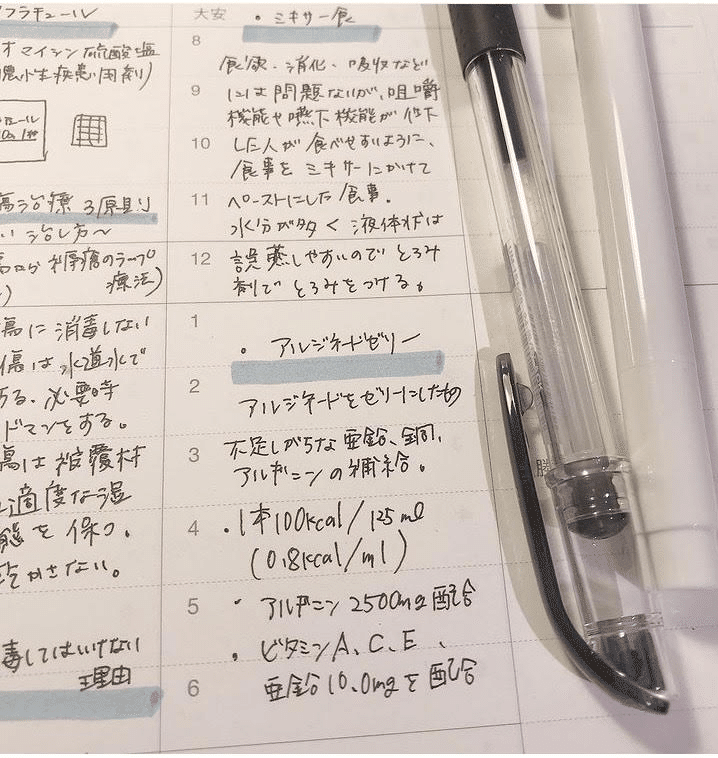 フラジュール
オマイシン硫酸塩
膿性疾患用剤)
ロール
傷治療 3原則
い治し方〜
傷から 褥瘡のラップ
療法)
傷に消毒しない
傷は水道水で
する。必要時
ドマンをする。
傷は被覆材
適度な湿
態を保つ。
乾かさない。
毒してはいけない
理由
大安
・ミキサー食
8
食欲、消化、吸収など
9
には問題ないが、咀嚼
機能や嚥下機能が低下
10
した人が食べやすいように、
食事をミキサーにかけて
11
ペーストにした食事。
水分が多く液体状は
12
誤嚥しやすいのでとろみ
剤でとろみをつける。
1
・アルジネードゼリー
2
アルジネードをゼリーにしたもの
3
不足しがちな亜鉛、銅、
アルギニンの補給。
4
・1本100kcal/125ml
(0.8kcal/ml)
5
・アルギニン2500mg配合
・ビタミンA、C、E、
6
亜鉛10.0mgを配合
勝